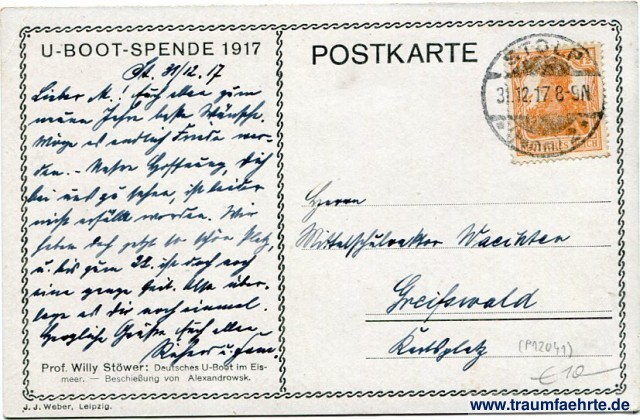 U-BOOT-SPENDE 1917
St. 31/12. 17
Lieber M.! Euch allen zum
neuen Jahre beste Wünsche.
Möge es endlich Friede wer-
den. – Unsere Hoffnung, Dich
bei uns zu sehen, ist leider
nicht erfüllt worden. Wir
haben doch jetzt so schön Platz,
u. bis zum 22. ist doch noch
eine ganze Zeit. Also über-
lege es Dir noch einmal.
Herzliche Grüße Euch allen
u.
Prof. Willy Stöwer: Deutsches U-Boot im Eis-
meer. — Beschießung von Alexandrowsk.
J. J. Weber, Leipzig.
POSTKARTE
STOLP
31.12.17 8-9N
Herrn
Mittelschulrektor Waechter
Greifswald
Karlsplatz
(P12041)
€ 10
www.traumfaehrte.de